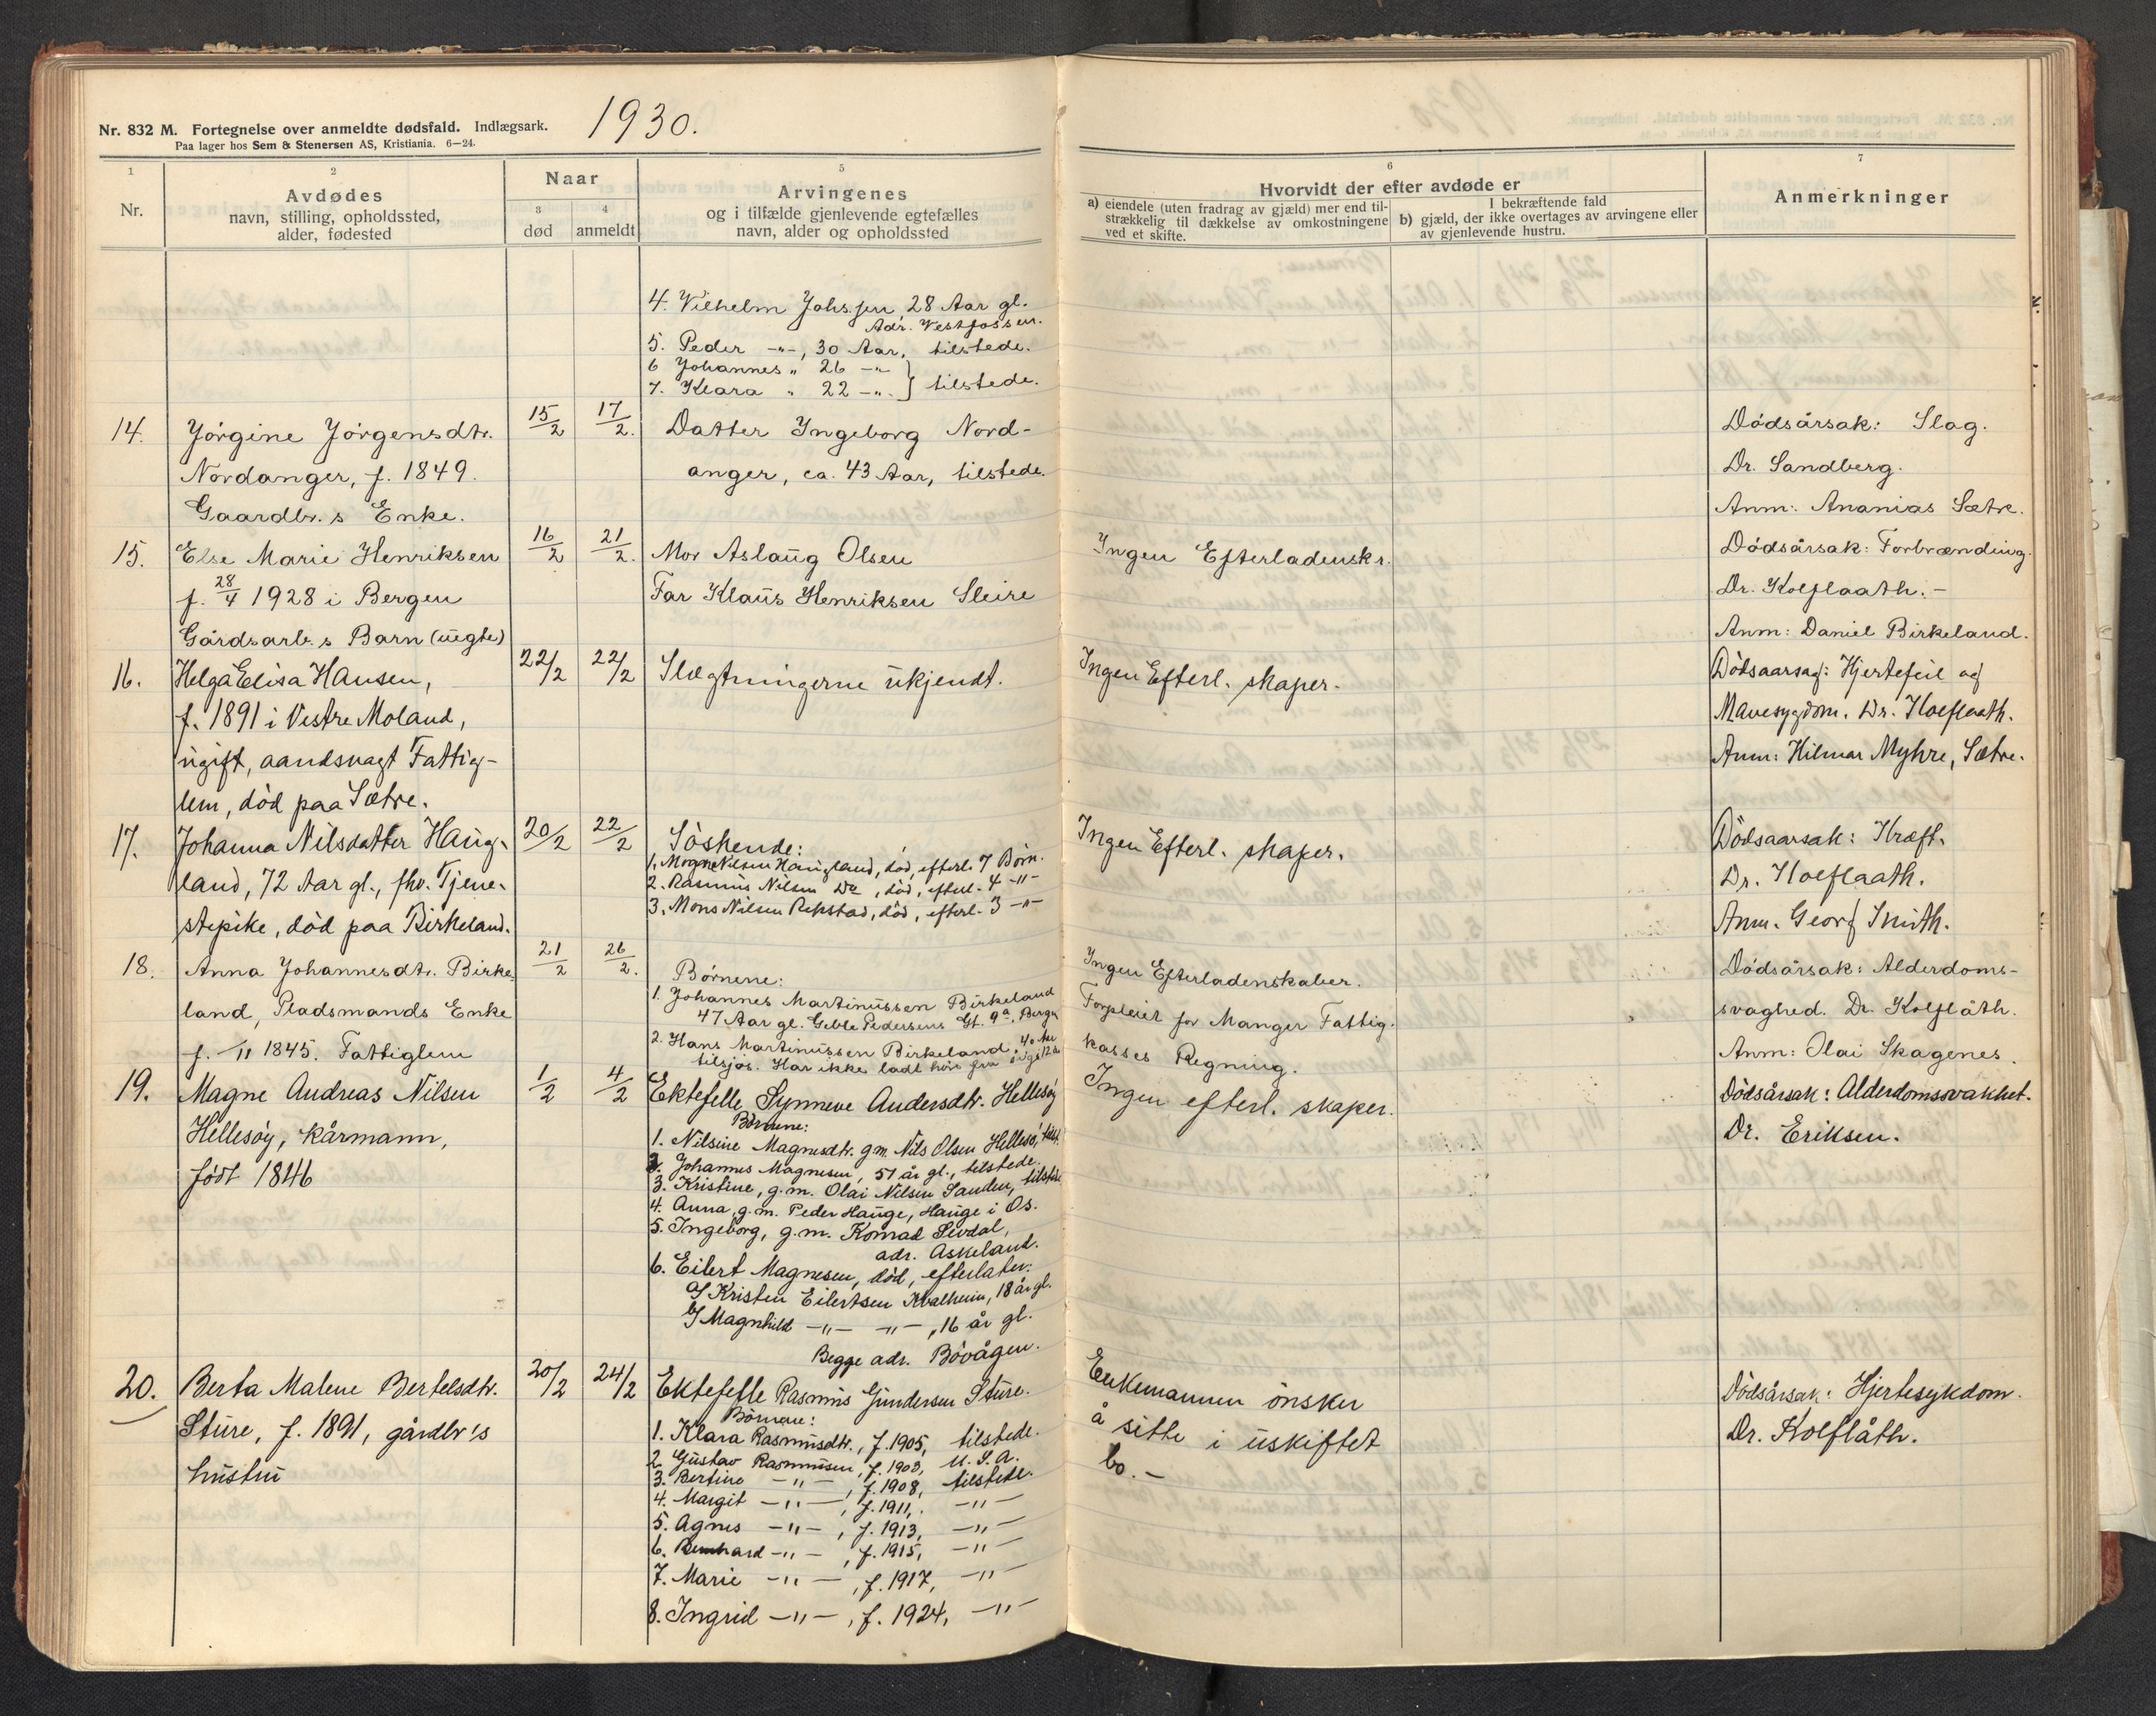 Nr. 832 M. Fortegnelse over anmeldte dødsfald. Indlægsark.
Paa lager hos Sem & Stenersen AS, Kristiania. 6—24.
1930.
1
Nr.
2
Avdødes
navn, stilling, opholdssted,
alder, fødested
Naar
3
død
4
anmeldt
5
Arvingenes
og i tilfælde gjenlevende egtefælles
navn, alder og opholdssted
6
Hvorvidt der efter avdøde er
a) eiendele (uten fradrag av gjæld) mer end til-
strækkelig til dækkelse av omkostningene
ved et skifte.
I bekræftende fald
b) gjæld, der ikke overtages av arvingene eller
av gjenlevende hustru.
7
Anmerkninger
4. Vilhelm Johssen 28 Aar gl.
Adr. Vestfossen.
5. Peder -"-, 30 Aar, tilstede.
6 Johannes " 26 -"-
7. Klara " 22 -"- } tilstede.
14.
Jörgine Jörgensdtr.
Nordanger, f. 1849.
Gaardbr.s Enke.
15/2
17/2.
Datter Ingeborg Nord-
anger, ca. 43 Aar, tilstede.
Dödsårsak: Slag.
Dr. Sandberg.
Anm: Ananias Sætre.
15.
Else Marie Henriksen
f. 28/4 1928 i Bergen
Gårdsarb.s Barn (uegte)
16/2
21/2.
Mor Aslaug Olsen
Far Klaus Henriksen Sleire
Ingen Efterladenskr.
Dödsårsak: Forbrænding.
Dr. Kolflaath.-
Anm: Daniel Birkeland.
16.
Helga Elisa Hansen,
f. 1891 i Vestre Moland,
ugift, aandsvagt Fattig-
lem, död paa Sætre.
22/2
22/2
Slægtningerne ukjendt.
Ingen Efterl. skaper.
Dödsaarsag: Hjertefeil og
Mavesygdom. Dr. Kolflaath.
Anm: Hilmar Myhre, Sætre.
17.
Johanna Nilsdatter Haug-
land, 72 Aar gl., fhv. Tjene-
stepike, död paa Birkeland.
20/2
22/2
Söskende:
1. Mogne Nilsen Haugland, död, efterl. 7 Børn.
2. Rasmus Nilsen Do, död, efterl. 4 -"-
3. Mons Nilsen Rekstad, död, efterl. 3 -"-
Ingen Efterl. skaper.
Dödsaarsak: Kræft.
Dr. Kolflaath.
Anm. Georg Smith.
18.
Anna Johannesdtr. Birke-
land, Pladsmands Enke
f. -/11 1845. Fattiglem
21/2
26/2.
Børnene:
1. Johannes Martinussen Birkeland
47 Aar gl. Geble Pedersens Gt. 9a, Bergen
2. Hans Martinussen Birkeland, 40 Aar
tilsjøs. Har ikke ladt höre fra
Ingen Efterladenskaber.
Forpleiet for Manger Fattig-
kasses Regning.
Dödsårsak: Alderdoms-
svaghed. Dr. Kolflåth.
Anm: Olai Skagenes.
19.
Magne Andreas Nilsen
Hellesöy, kårmann,
født 1846
1/2
4/2
Ektefelle Synneve Andersdtr. Hellesöy
Börnene:
1. Nilsine Magnesdtr. g.m. Nils Olsen Hellesö, tilst.
2. Johannes Magnesen, 51 år gl., tilstede.
3. Kristine, g.m. Olai Nilsen Sanden, tilstede
4. Anna, g.m. Peder Hauge, Hauge i Os.
5. Ingeborg, g.m. Konrad Sevdal,
adr. Askeland.
6. Eilert Magnesen, död, efterlater:
a/ Kristen Eilertsen Kvalheim, 18 år gl.
b/ Magnhild -"- -"-, 16 år gl.
Begge adr. Bövågen.
Ingen efterl. skaper.
Dødsårsak: Alderdomssvakhet.
Dr. Eriksen.
20.
Berta Malene Bertelsdtr.
Sture, f. 1891, gårdbr's
hustru
20/2
24/2
Ektefelle Rasmus Gundersen Sture.
Börnene:
1. Klara Rasmusdtr., f. 1905, tilstede.
2. Gustav Rasmussen, f. 1903, U.S.A.
3. Bertine -"-, f. 1908, tilstede.
4. Margit -"-, f. 1911, -"-
5. Agnes -"-, f. 1913, -"-
6. Bernhard -"-, f. 1915, -"-
7. Marie -"-, f. 1917, -"-
8. Ingrid -"-, f. 1924, -"-
Enkemannen önsker
å sitte i uskiftet
bo. -
Dödsårsak: Hjertesykdom.
Dr. Kolflåth.